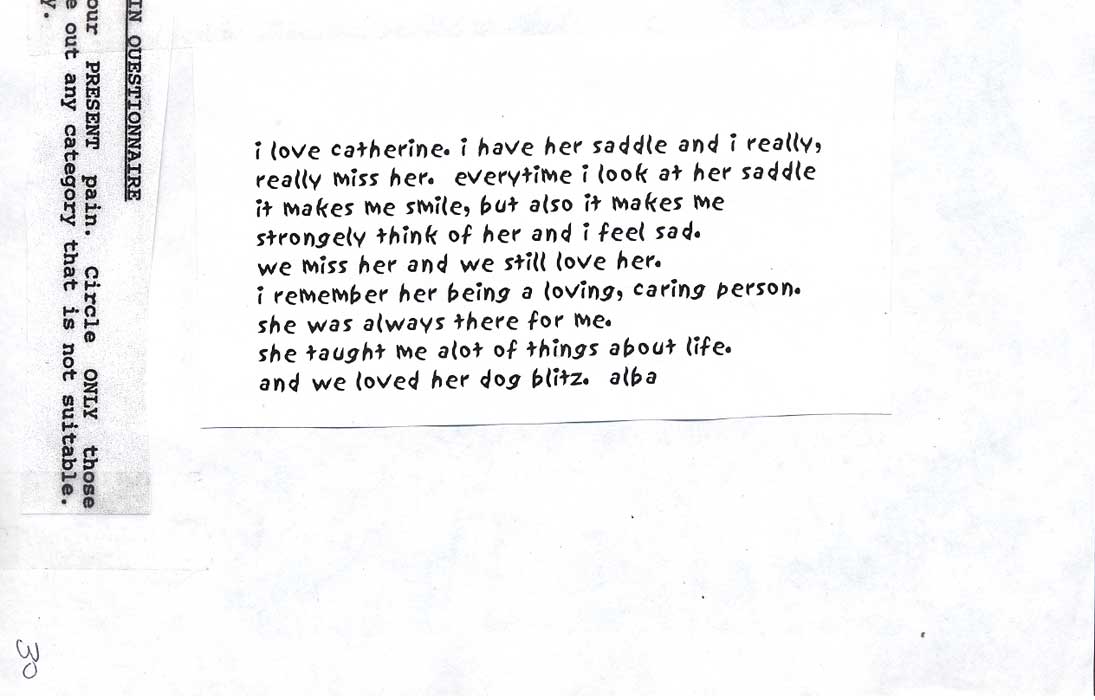 IN QUESTIONNAIRE
our PRESENT pain. Circle ONLY those
e out any category that is not suitable.
y.
i love catherine. i have her saddle and i really,
really miss her. everytime i look at her saddle
it makes me smile, but also it makes me
strongely think of her and i feel sad.
we miss her and we still love her.
i remember her being a loving, caring person.
she was always there for me.
she taught me alot of things about life.
and we loved her dog blitz. alba
30